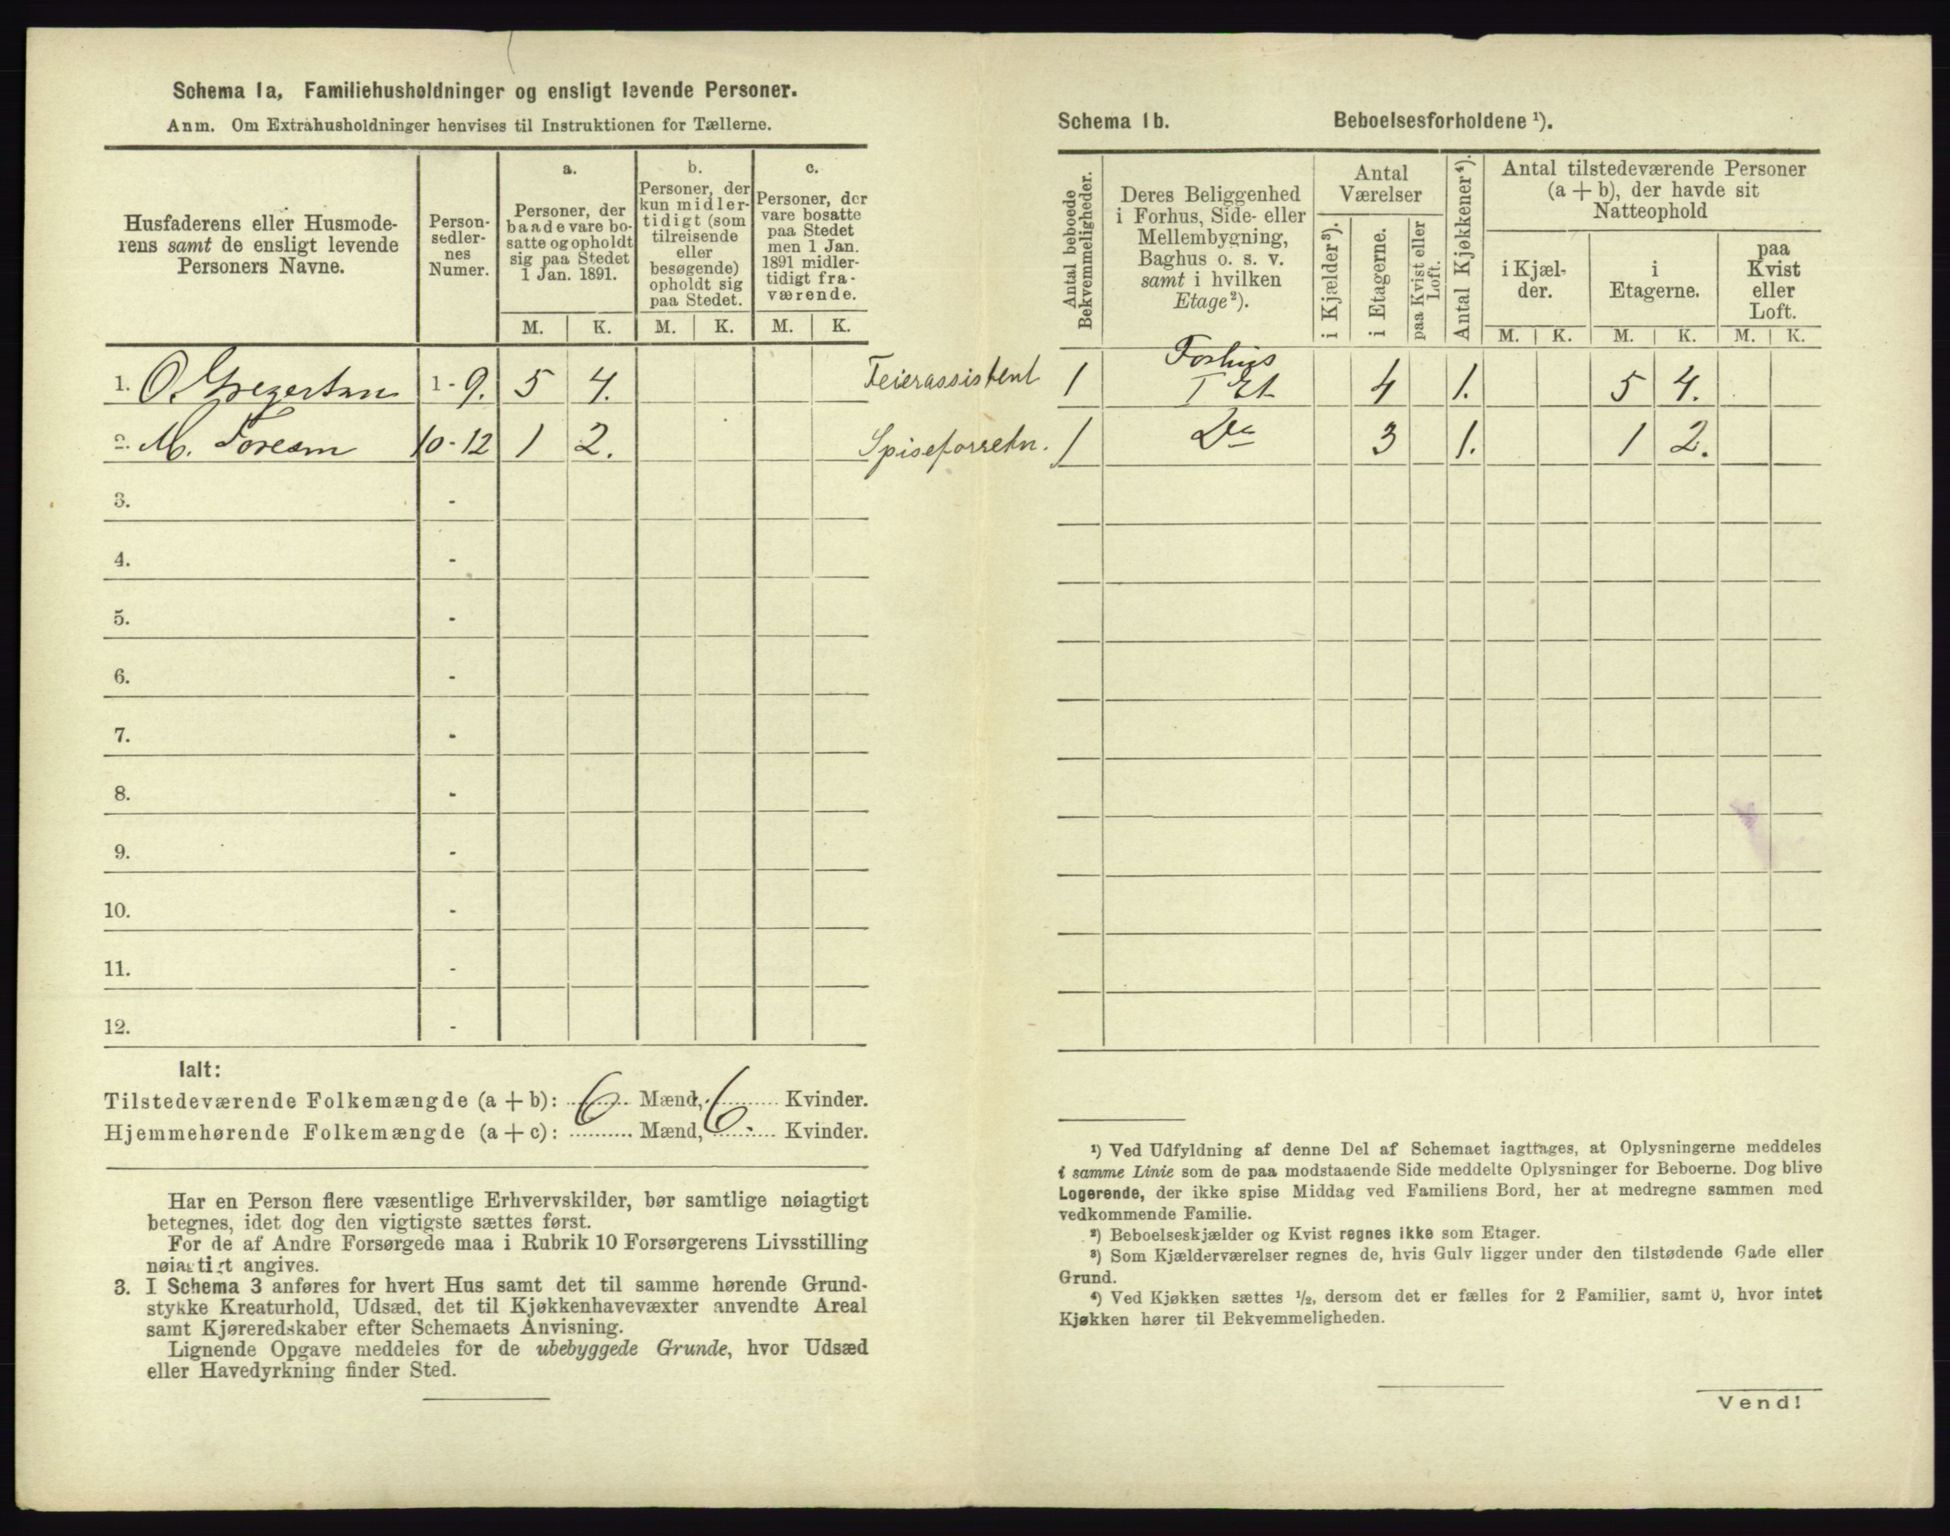 Schema 1a, Familiehusholdninger og ensligt levende Personer.
Anm. Om Extrahusholdninger henvises til Instruktionen for Tællerne.
Husfaderens eller Husmode-
rens samt de ensligt levende
Personers Navne.
Person-
sedler-
nes
Numer.
a.
Personer, der
baade vare bo-
satte og opholdt
sig paa Stedet
1 Jan. 1891.
b.
Personer, der
kun midler-
tidigt (som
tilreisende
eller
besøgende)
opholdt sig
paa Stedet.
c.
Personer, der
vare bosatte
paa Stedet
men 1 Jan.
1891 midler-
tidigt fra-
værende.
M. K. M. K. M. K.
1. O. Gregertsen 1 - 9. 5 4. Feierassistent
2. M. Foresm 10 - 12 1 2. Spiseforretn.
3. -
4. -
5. -
6. -
7. -
8. -
9. -
10. -
11. -
12. -
Ialt:
Tilstedeværende Folkemængde (a + b): 6 Mænd, 6 Kvinder.
Hjemmehørende Folkemængde (a + c): Mænd, Kvinder.
Har en Person flere væsentlige Erhvervskilder, bør samtlige nøiagtigt
betegnes, idet dog den vigtigste sættes først.
For de af Andre Forsørgede maa i Rubrik 10 Forsørgerens Livsstilling
nøiagtigt angives.
3. I Schema 3 anføres for hvert Hus samt det til samme hørende Grund-
stykke Kreaturhold, Udsæd, det til Kjøkkenhavevæxter anvendte Areal
samt Kjøreredskaber efter Schemaets Anvisning.
Lignende Opgave meddeles for de ubebyggede Grunde, hvor Udsæd
eller Havedyrkning finder Sted.
Schema 1b. Beboelsesforholdene ¹).
Antal beboede
Bekvemmeligheder.
Deres Beliggenhed
i Forhus, Side- eller
Mellembygning,
Baghus o. s. v.
samt i hvilken
Etage²).
Antal
Værelser
i Kjælder³).
i Etagerne.
paa Kvist eller
Loft.
Antal Kjøkkener⁴).
Antal tilstedeværende Personer
(a + b), der havde sit
Natteophold
i Kjæl-
der.
i
Etagerne.
paa
Kvist
eller
Loft.
M. K. M. K. M. K.
1 Forhus
I Et 4 1. 5 4.
1 Do 3 1. 1 2.
¹) Ved Udfyldning af denne Del af Schemaet iagttages, at Oplysningerne meddeles
i samme Linie som de paa modstaaende Side meddelte Oplysninger for Beboerne. Dog blive
Logerende, der ikke spise Middag ved Familiens Bord, her at medregne sammen med
vedkommende Familie.
²) Beboelseskjælder og Kvist regnes ikke som Etager.
³) Som Kjælderværelser regnes de, hvis Gulv ligger under den tilstødende Gade eller
Grund.
⁴) Ved Kjøkken sættes ½, dersom det er fælles for 2 Familier, samt 0, hvor intet
Kjøkken hører til Bekvemmeligheden.
Vend!